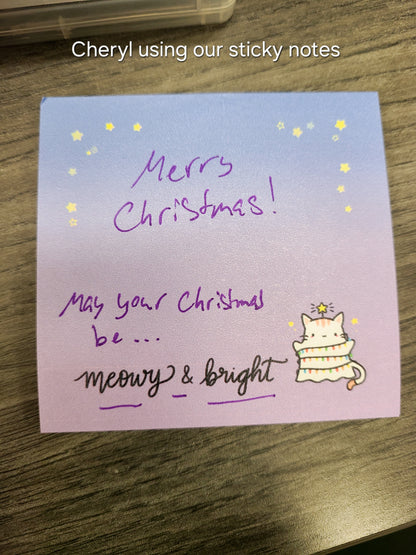 Cheryl using our sticky notes
Merry
Christmas!
May your Christmas
be...
meowy & bright